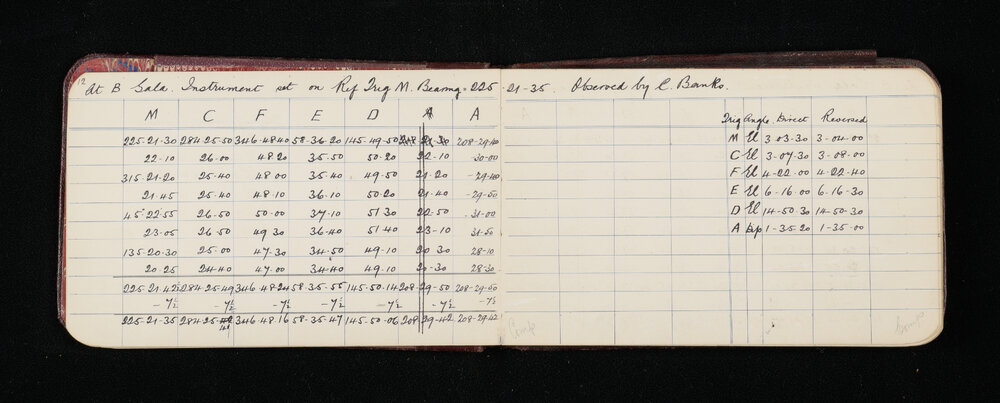 12
At B Gala. Instrument set on Ref Trig M. Bearing = 225 - 21-35. Observed by C. Banks.
M C F E D A A
225-21-30 284-25-50 346-48-40 58-36-20 145-49-50 208-29-40
22-10 26-00 48-20 35-50 50-20 22-10 30-00
315-21-20 25-40 48-00 35-40 49-50 21-20 -29-40
21-45 25-40 48-10 36-10 50-20 21-40 -29-50
45-22-55 26-50 50-00 37-10 51-30 22-50 31-00
23-05 26-50 49-30 36-40 51-40 23-10 31-50
135-20-30 25-00 47-30 34-50 49-10 20-30 28-10
20-25 24-40 47-00 34-40 49-10 20-30 28-30
225-21-42½ 284-25-49 346-48-24 58-35-55 145-50-14 208-29-50 208-29-50
-7½ -7½ -7½ -7½ -7½ -7½ -7½
225-21-35 284-25-42 346-48-16 58-35-47 145-50-06 208-29-42 208-29-42
41
Trig Angle. Direct Reversed
M El 3-03-30 3-04-00
C El 3-07-30 3-08-00
F El 4-22-00 4-22-40
E El 6-16-00 6-16-30
D El 14-50-30 14-50-30
A Dep 1-35-20 1-35-00
Comp
Comp